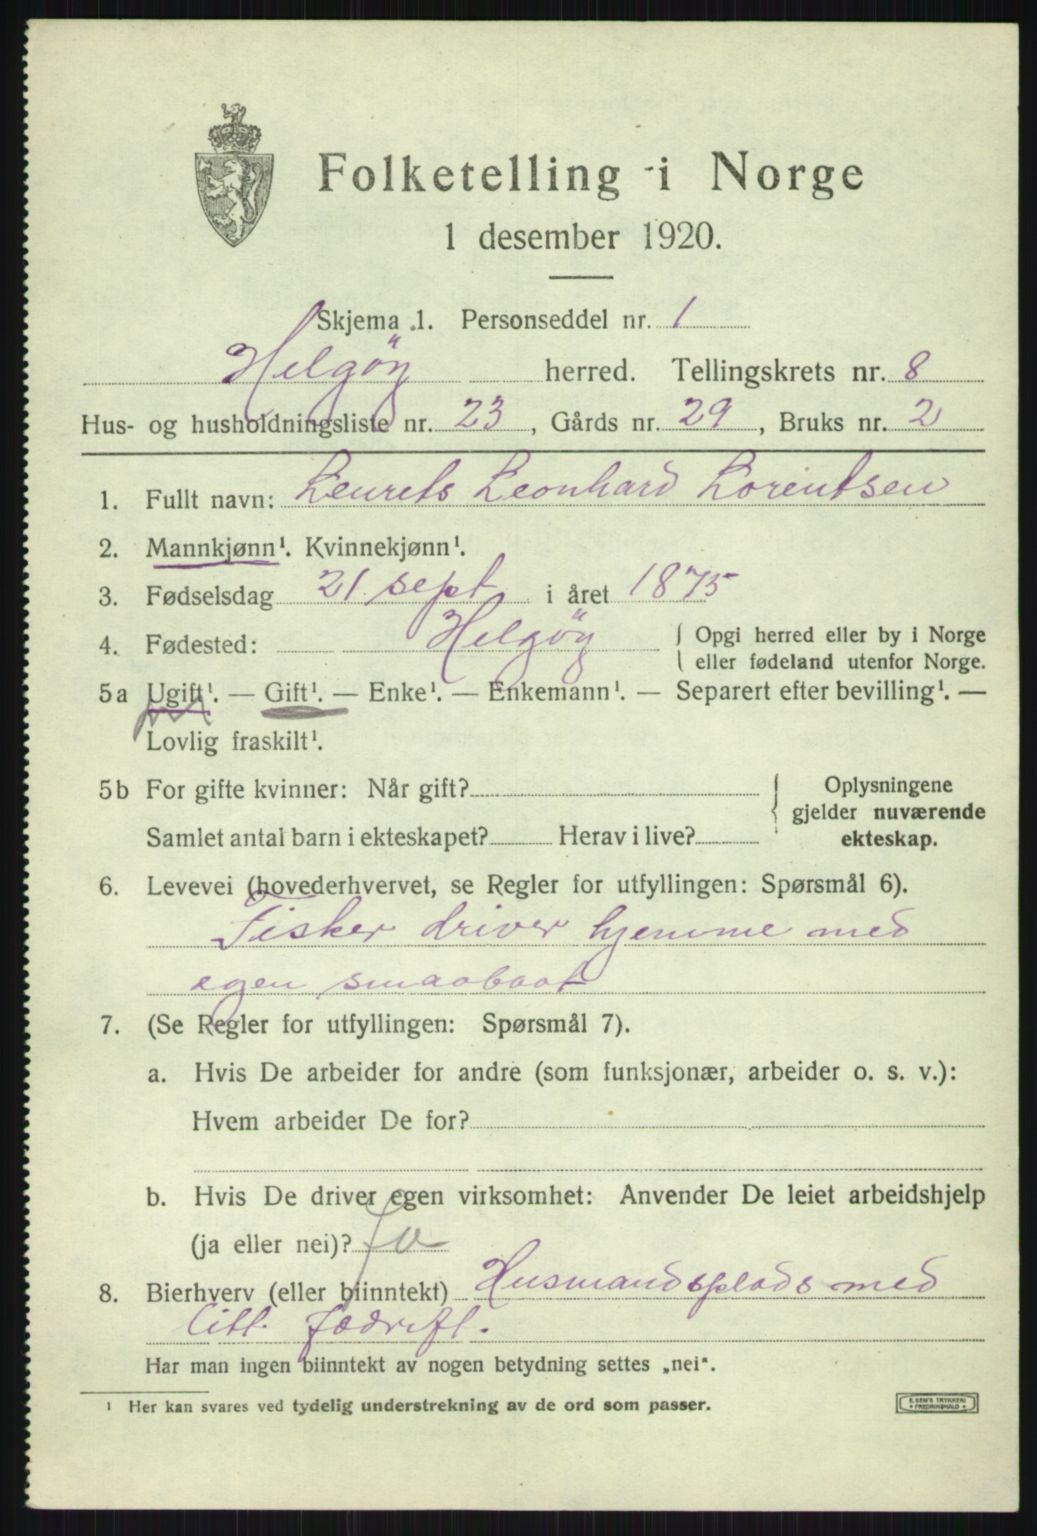 Folketelling i Norge
1 desember 1920.
Skjema 1. Personseddel nr. 1
Helgöy herred. Tellingskrets nr. 8
Hus- og husholdningsliste nr. 23, Gårds nr. 29, Bruks nr. 2
1. Fullt navn: Leurets Leonhard Lorentsen
2. Mannkjønn¹. Kvinnekjønn¹.
3. Fødselsdag 21 sept i året 1875
4. Fødested: Helgöy { Opgi herred eller by i Norge
eller fødeland utenfor Norge.
5a Ugift¹. — Gift¹. — Enke¹. — Enkemann¹. — Separert efter bevilling¹. —
Lovlig fraskilt¹.
5b For gifte kvinner: Når gift? { Oplysningene
gjelder nuværende
Samlet antal barn i ekteskapet? Herav i live? ekteskap.
6. Levevei (hovederhvervet, se Regler for utfyllingen: Spørsmål 6).
Fisker driver hjemme med
egen smaabaat
7. (Se Regler for utfyllingen: Spørsmål 7).
a. Hvis De arbeider for andre (som funksjonær, arbeider o. s. v.):
Hvem arbeider De for?
b. Hvis De driver egen virksomhet: Anvender De leiet arbeidshjelp
(ja eller nei)? Ja
8. Bierhverv (eller biinntekt) Husmandsplads med
litt fædrift.
Har man ingen biinntekt av nogen betydning settes „nei".
¹ Her kan svares ved tydelig understrekning av de ord som passer.
E. SEM'S TRYKKERI
FREDRIKSHALD